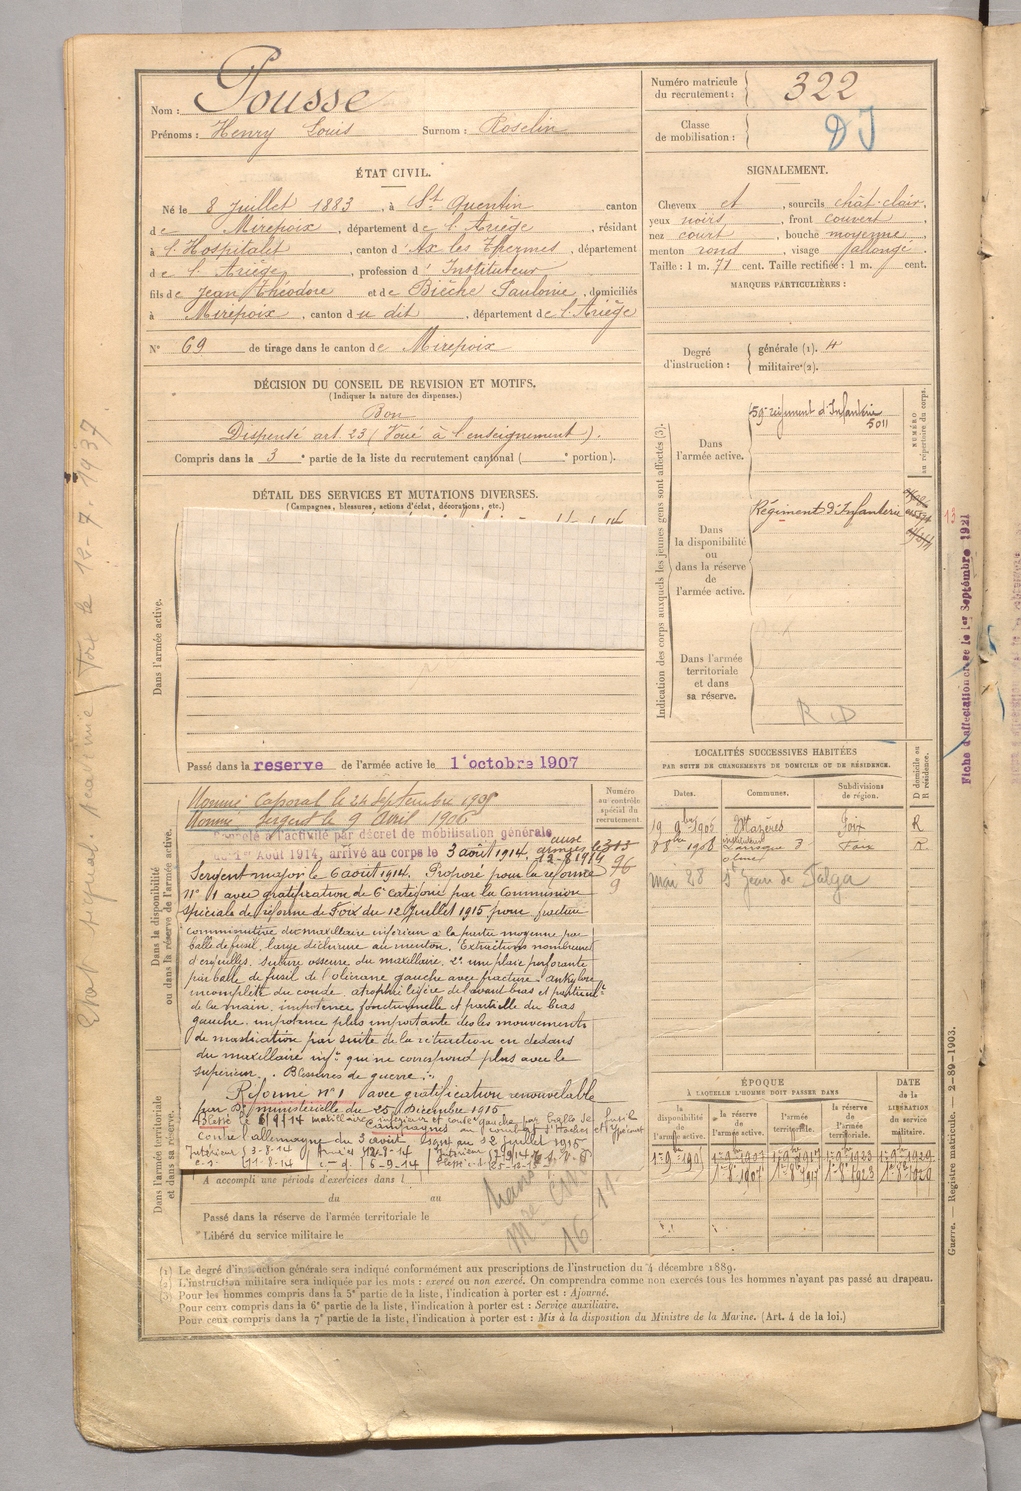 Nom : Pousse
Prénoms : Henry Louis Surnom : Roselin
Numéro matricule du recrutement : 322
Classe de mobilisation : DJ
ÉTAT CIVIL.
Né le 8 Juillet 1883, à St Quentin canton
de Mirepoix, département de l'Ariège, résidant
à l'Hospitalet, canton d'Ax les Thermes, département
de l'Ariège, profession d'Instituteur
fils de Jean Théodore et de Bièche Paulonie, domiciliés
à Mirepoix, canton du dit, département de l'Ariège
N° 69 de tirage dans le canton de Mirepoix
SIGNALEMENT.
Cheveux et, sourcils chât-clair,
yeux noirs, front couvert,
nez court, bouche moyenne
menton rond, visage allongé.
Taille : 1 m. 71 cent. Taille rectifiée : 1 m. cent.
MARQUES PARTICULIÈRES :
Degré d'instruction : générale (1). 4
militaire (2).
DÉCISION DU CONSEIL DE REVISION ET MOTIFS.
(Indiquer la nature des dispenses.)
Bon
Dispensé art. 23 (Voué à l'enseignement).
Compris dans la 3e partie de la liste du recrutement cantonal ( e portion).
DÉTAIL DES SERVICES ET MUTATIONS DIVERSES.
(Campagnes, blessures, actions d'éclat, décorations, etc.)
Dans l'armée active.
Passé dans la reserve de l'armée active le 1er octobre 1907
Indication des corps auxquels les jeunes gens sont affectés (3).
NUMÉRO au répertoire du corps.
Dans l'armée active.
59e régiment d'Infanterie
5011
Dans la disponibilité ou dans la réserve de l'armée active.
Régiment d'Infanterie
Dans l'armée territoriale et dans sa réserve.
R D
Fiche d'affectation créée le 1er Septembre 1921
13
Dans la disponibilité ou dans la réserve de l'armée active.
Numéro au contrôle spécial du recrutement.
Nommé Caporal le 24 Septembre
Nommé Sergent le 9 Avril 1906
Rappelé à l'activité par décret de mobilisation générale
du 1er Août 1914, arrivé au corps le 3 août 1914.
aux armées le 12-8-1914
96
9
Sergent major le 6 août 1914. Proposé pour la réforme
n° 1 avec gratification de 6e catégorie par la Commission
spéciale de réforme de Foix du 12 Juillet 1915 pour fracture
comminutive du maxillaire inférieur à la partie moyenne par
balle de fusil, large déchirure au menton. Extractions nombreuses
d'esquilles, suture osseuse du maxillaire. 2° une plaie perforante
par balle de fusil de l'olécrane gauche avec fracture. ankylose
incomplète du coude, atrophie légère de l'avant bras et particult
de la main, impotence fonctionnelle et partielle du bras
gauche, impotence plus importante des les mouvements
de mastication par suite de la rétraction en dedans
du maxillaire infr qui ne correspond plus avec le
supérieur. Blessures de guerre.
Réformé n° 1 avec gratification renouvelable
par Dn ministérielle du 25 Décembre 1915
Blessé le 6/9/14 maxillaire inférieur et coude gauche par balle de fusil
Campagnes
contre l'allemagne du 3 août au 12 Juillet 1915
Intérieur 3-8-14 11-8-14
Armées 12-8-14
c. d. 6-9-14
Intérieur 7-9-14
25-12-15
Dans l'armée territoriale et dans sa réserve.
A accompli une périodes d'exercices dans l
du au
Passé dans la réserve de l'armée territoriale le
Libéré du service militaire le
16
LOCALITÉS SUCCESSIVES HABITÉES
PAR SUITE DE CHANGEMENTS DE DOMICILE OU DE RÉSIDENCE.
Dates. Communes. Subdivisions de région. D domicile ou R résidence.
19 9bre 1905 Mazères Foix R
8 8bre 1908 instituteur Foix R
mai 28 St Jean de Falga
ÉPOQUE
À LAQUELLE L'HOMME DOIT PASSER DANS
DATE de la LIBÉRATION du service militaire.
la disponibilité de l'armée active. la réserve de l'armée active. l'armée territoriale. la réserve de l'armée territoriale.
1er 9bre 1905 1er 9bre 1907 1er 9bre 1917 1er 9bre 1923 1er 9bre 1929
1er 8bre 1907 1er 8bre 1917 1er 8bre 1923 1er 8bre 1926
(1) Le degré d'instruction générale sera indiqué conformément aux prescriptions de l'instruction du 4 décembre 1889.
(2) L'instruction militaire sera indiquée par les mots : exercé ou non exercé. On comprendra comme non exercés tous les hommes n'ayant pas passé au drapeau.
(3) Pour les hommes compris dans la 5e partie de la liste, l'indication à porter est : Ajourné.
Pour ceux compris dans la 6e partie de la liste, l'indication à porter est : Service auxiliaire.
Pour ceux compris dans la 7e partie de la liste, l'indication à porter est : Mis à la disposition du Ministre de la Marine. (Art. 4 de la loi.)
Guerre. — Registre matricule. — 2-89-1903.
Foix le 12-7-1937